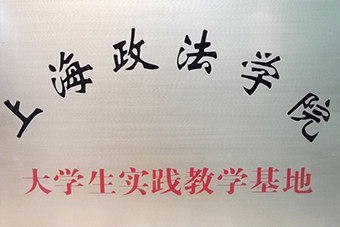 上海政法学院
大学生实践教学基地